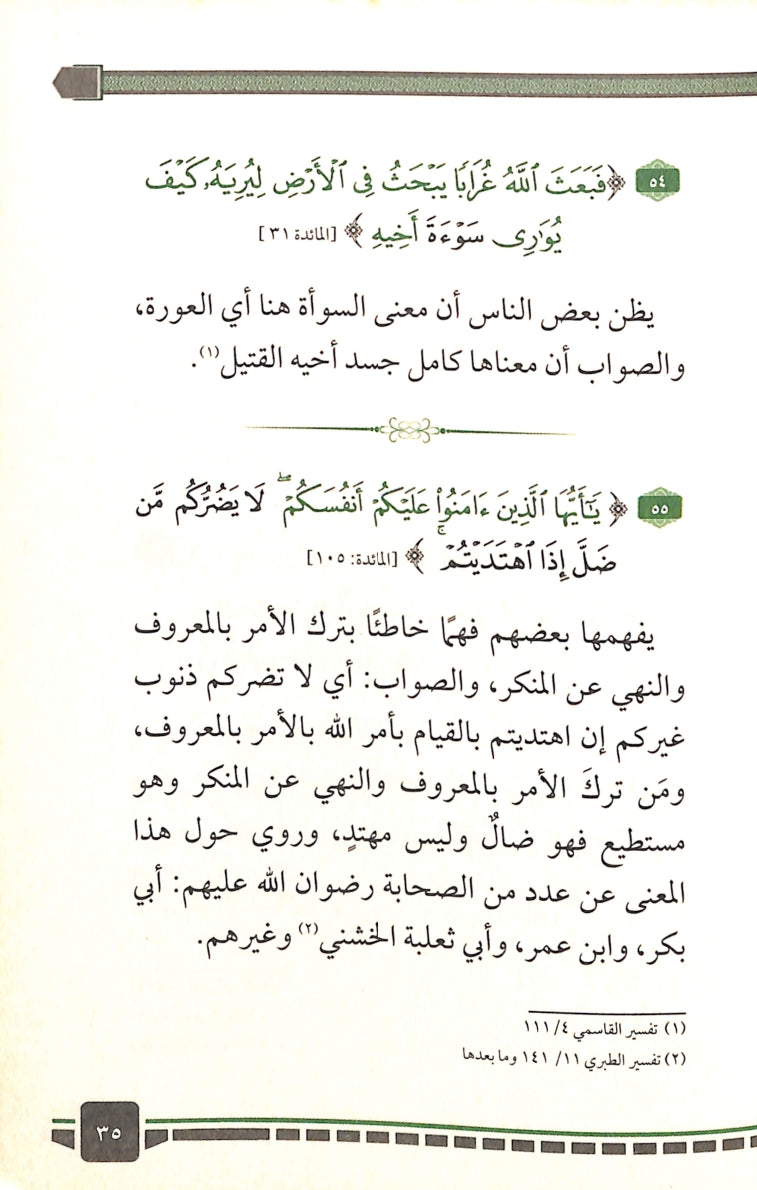 ٥٤ ﴿فَبَعَثَ ٱللَّهُ غُرَابًا يَبْحَثُ فِى ٱلْأَرْضِ لِيُرِيَهُۥ كَيْفَ
يُوَٰرِى سَوْءَةَ أَخِيهِ﴾ [المائدة ٣١]
يظن بعض الناس أن معنى السوأة هنا أي العورة،
والصواب أن معناها كامل جسد أخيه القتيل(١).
٥٥ ﴿يَٰٓأَيُّهَا ٱلَّذِينَ ءَامَنُوا۟ عَلَيْكُمْ أَنفُسَكُمْ ۖ لَا يَضُرُّكُم مَّن
ضَلَّ إِذَا ٱهْتَدَيْتُمْ ۚ﴾ [المائدة: ١٠٥]
يفهمها بعضهم فهمًا خاطئًا بترك الأمر بالمعروف
والنهي عن المنكر، والصواب: أي لا تضركم ذنوب
غيركم إن اهتديتم بالقيام بأمر الله بالأمر بالمعروف،
ومَن تركَ الأمر بالمعروف والنهي عن المنكر وهو
مستطيع فهو ضالٌ وليس مهتدٍ، وروي حول هذا
المعنى عن عدد من الصحابة رضوان الله عليهم: أبي
بكر، وابن عمر، وأبي ثعلبة الخشني(٢) وغيرهم.
(١) تفسير القاسمي ٤/ ١١١
(٢) تفسير الطبري ١١/ ١٤١ وما بعدها
٣٥